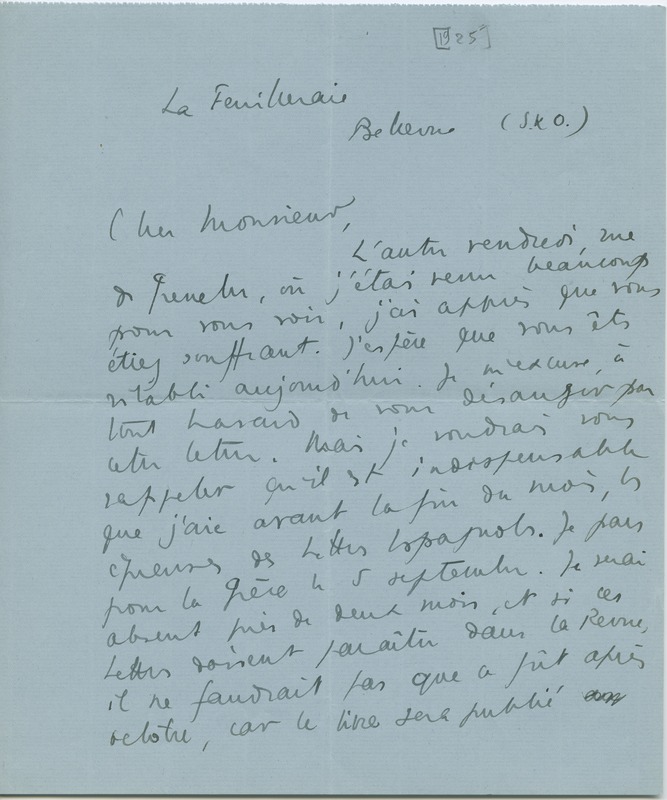 [1925]
La Feuilleraie
Bellevue (S. & O.)
Cher Monsieur,
L'autre vendredi, rue
de Grenelle, où j'étais venu beaucoup
pour vous voir, j'ai appris que vous
étiez souffrant. J'espère que vous êtes
rétabli aujourd'hui. Je m'excuse, à
tout hasard de vous déranger par
cette lettre. Mais je voudrais vous
rappeler qu'il est indispensable
que j'aie avant la fin du mois, les
épreuves des Lettres Espagnoles. Je pars
pour la Grèce le 5 septembre. Je serai
absent près de deux mois, et si ces
Lettres doivent paraître dans la Revue,
il ne faudrait pas que ce fût après
octobre, car le livre sera publié